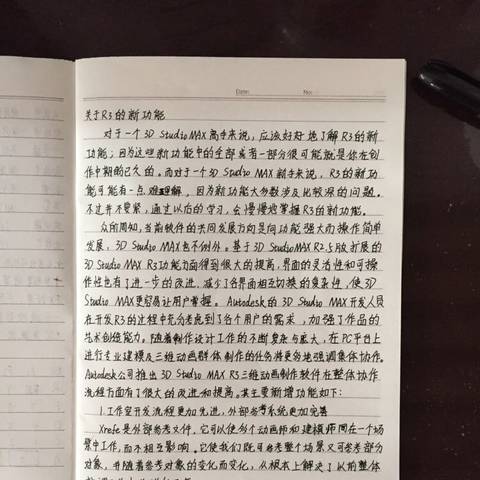 Date: No:
关于R3的新功能
对于一个3D StudioMAX高手来说，应该好好地了解R3的新
功能；因为这些新功能中的全部或者一部分很可能就是你在创
作中期盼已久的。而对于一个3D StudioMAX新手来说，R3的新功
能可能有一点难理解，因为新功能大多数涉及比较深的问题。
不过并不要紧，通过以后的学习，会慢慢地掌握R3的新功能。
众所周知，当前软件的共同发展方向是向功能强大而操作简单
发展，3D Studio MAX也不例外。基于3D StudioMAX R2.5版扩展的
3D Studio MAX R3功能方面得到很大的提高，界面的灵活性和可操
作性也有了进一步的改进，减少了各界面相互切换的复杂性，使3D
Studio MAX更容易让用户掌握。Autodesk的3D Studio MAX开发人员
在开发R3的过程中充分考虑到了各个用户的需求，加强了作品的
艺术创造能力。随着制作设计工作的不断复杂与庞大，在PC平台上
进行专业建模及三维动画群体制作的任务将更多地强调集体协作。
Autodesk公司推出3D Studio MAX R3三维动画制作软件在整体协作
流程方面有了很大的改进和提高。其主要新增功能如下：
1.工作室开发流程更加先进，外部参考系统更加完善
Xrefs是外部参考文件，它可以使多个动画师和建模师同在一个场
景中工作，而不相互影响。它使我们既可参考整个场景又可参考部分
对象，并随着参考对象的变化而变化，从根本上解决了以前整体